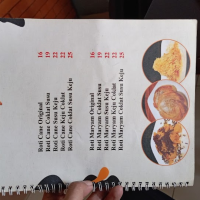 Roti Cane Original 16
Roti Cane Coklat Susu 19
Roti Cane Susu Keju 22
Roti Cane Keju Coklat 22
Roti Cane Coklat Susu Keju 25
Roti Maryam Original 16
Roti Maryam Coklat Susu 19
Roti Maryam Susu Keju 22
Roti Maryam Keju Coklat 22
Roti Maryam Coklat Susu Keju 25